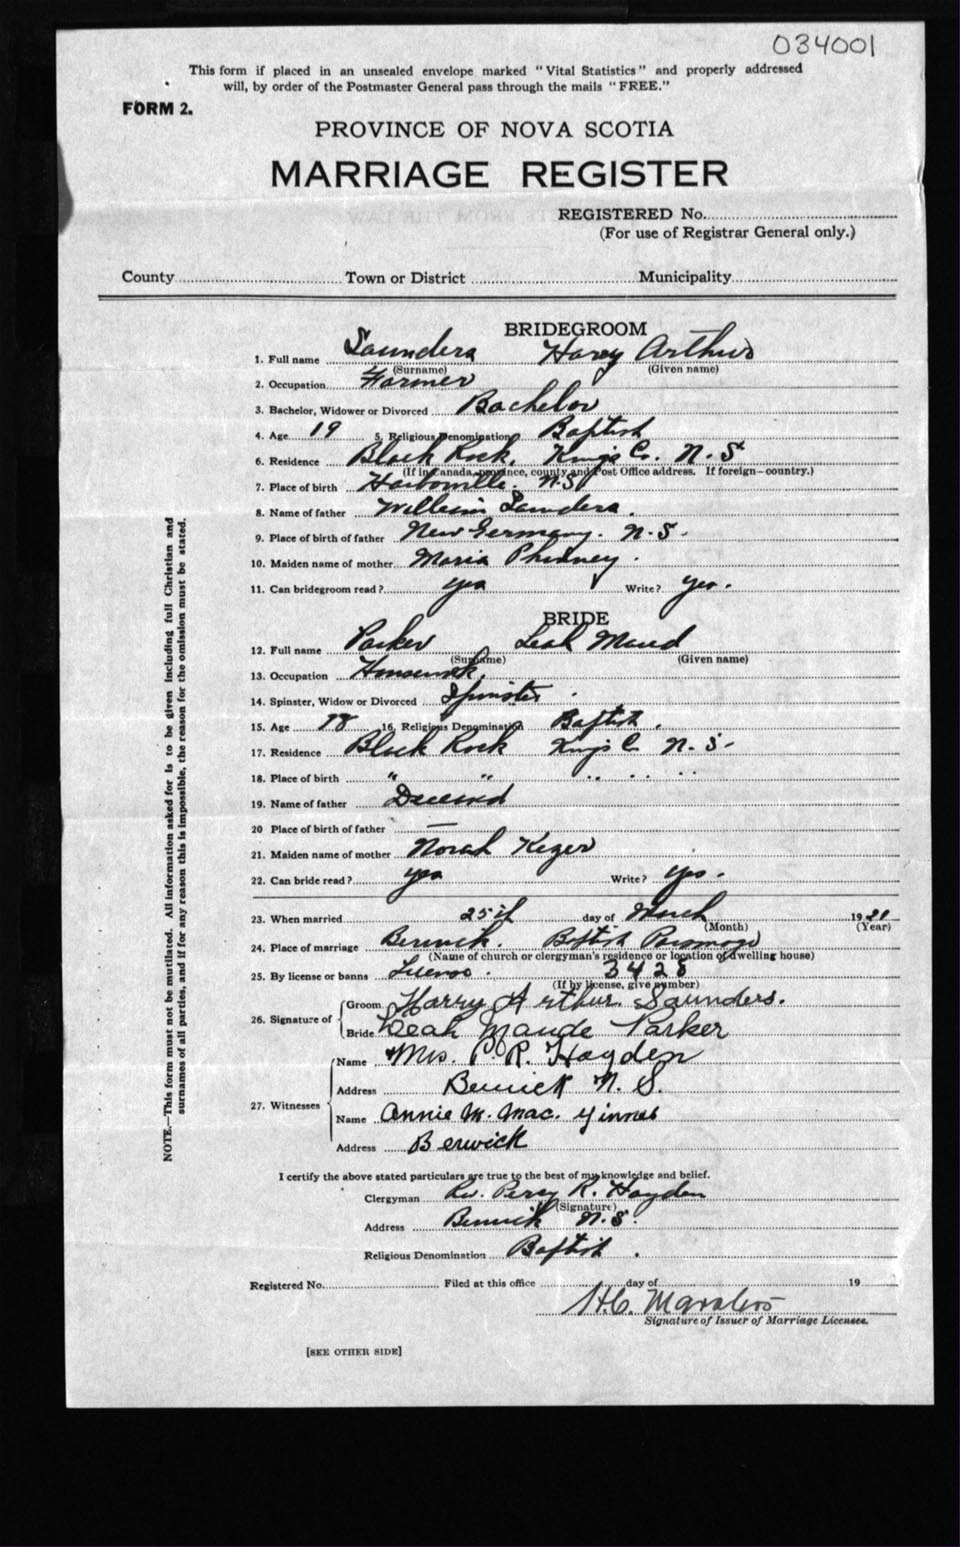 034001
This form if placed in an unsealed envelope marked "Vital Statistics" and properly addressed
will, by order of the Postmaster General pass through the mails "FREE."
FORM 2.
PROVINCE OF NOVA SCOTIA
MARRIAGE REGISTER
REGISTERED No.
(For use of Registrar General only.)
County Town or District Municipality
BRIDEGROOM
1. Full name Saunders Harry Arthur
(Surname) (Given name)
2. Occupation Farmer
3. Bachelor, Widower or Divorced Bachelor
4. Age 19 5. Religious Denomination Baptist
6. Residence Black Rock, Kings Co. N. S.
(If in Canada, province, county and Post Office address. If foreign—country.)
7. Place of birth Harborville. N.S
8. Name of father William Saunders.
9. Place of birth of father New Germany. N.S.
10. Maiden name of mother Maria Phinney.
11. Can bridegroom read? yes Write? yes.
BRIDE
12. Full name Parker Leah Maud
(Surname) (Given name)
13. Occupation Housework.
14. Spinster, Widow or Divorced Spinster.
15. Age 18 16. Religious Denomination Baptist.
17. Residence Black Rock Kings Co N. S.
18. Place of birth " " " " "
19. Name of father Deceased
20 Place of birth of father —
21. Maiden name of mother Norah Kezer
22. Can bride read? yes Write? yes.
23. When married 25th day of March 1921
(Month) (Year)
24. Place of marriage Berwick. Baptist Parsonage
(Name of church or clergyman's residence or location of dwelling house)
25. By license or banns License. 3428
(If by license, give number)
26. Signature of Groom Harry Arthur Saunders.
Bride Leah Maude Parker
27. Witnesses Name Mrs. P. R. Hayden
Address Berwick N. S.
Name Annie M. Mac.
Address Berwick
I certify the above stated particulars are true to the best of my knowledge and belief.
Clergyman Rev. Percy R. Hayden
(Signature)
Address Berwick N.S.
Religious Denomination Baptist.
Registered No. Filed at this office day of 19
H.C.
Signature of Issuer of Marriage Licenses.
[SEE OTHER SIDE]
NOTE.—This form must not be mutilated. All information asked for is to be given including full Christian and
surnames of all parties, and if for any reason this is impossible, the reason for the omission must be stated.